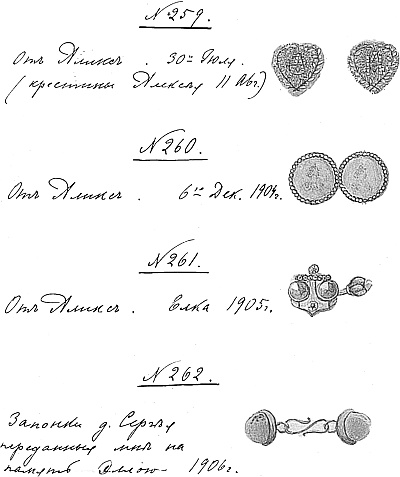 N 259.
Отъ Аликсъ. 30го Іюля.
(крестины Алексѣя 11 Авг.)
N 260.
Отъ Аликсъ. 6го Дек. 1904г.
N 261.
Отъ Аликсъ. Елка 1905г.
N 262.
Запонки д. Сергѣя
переданныя мнѣ на
память Эллою – 1906г.